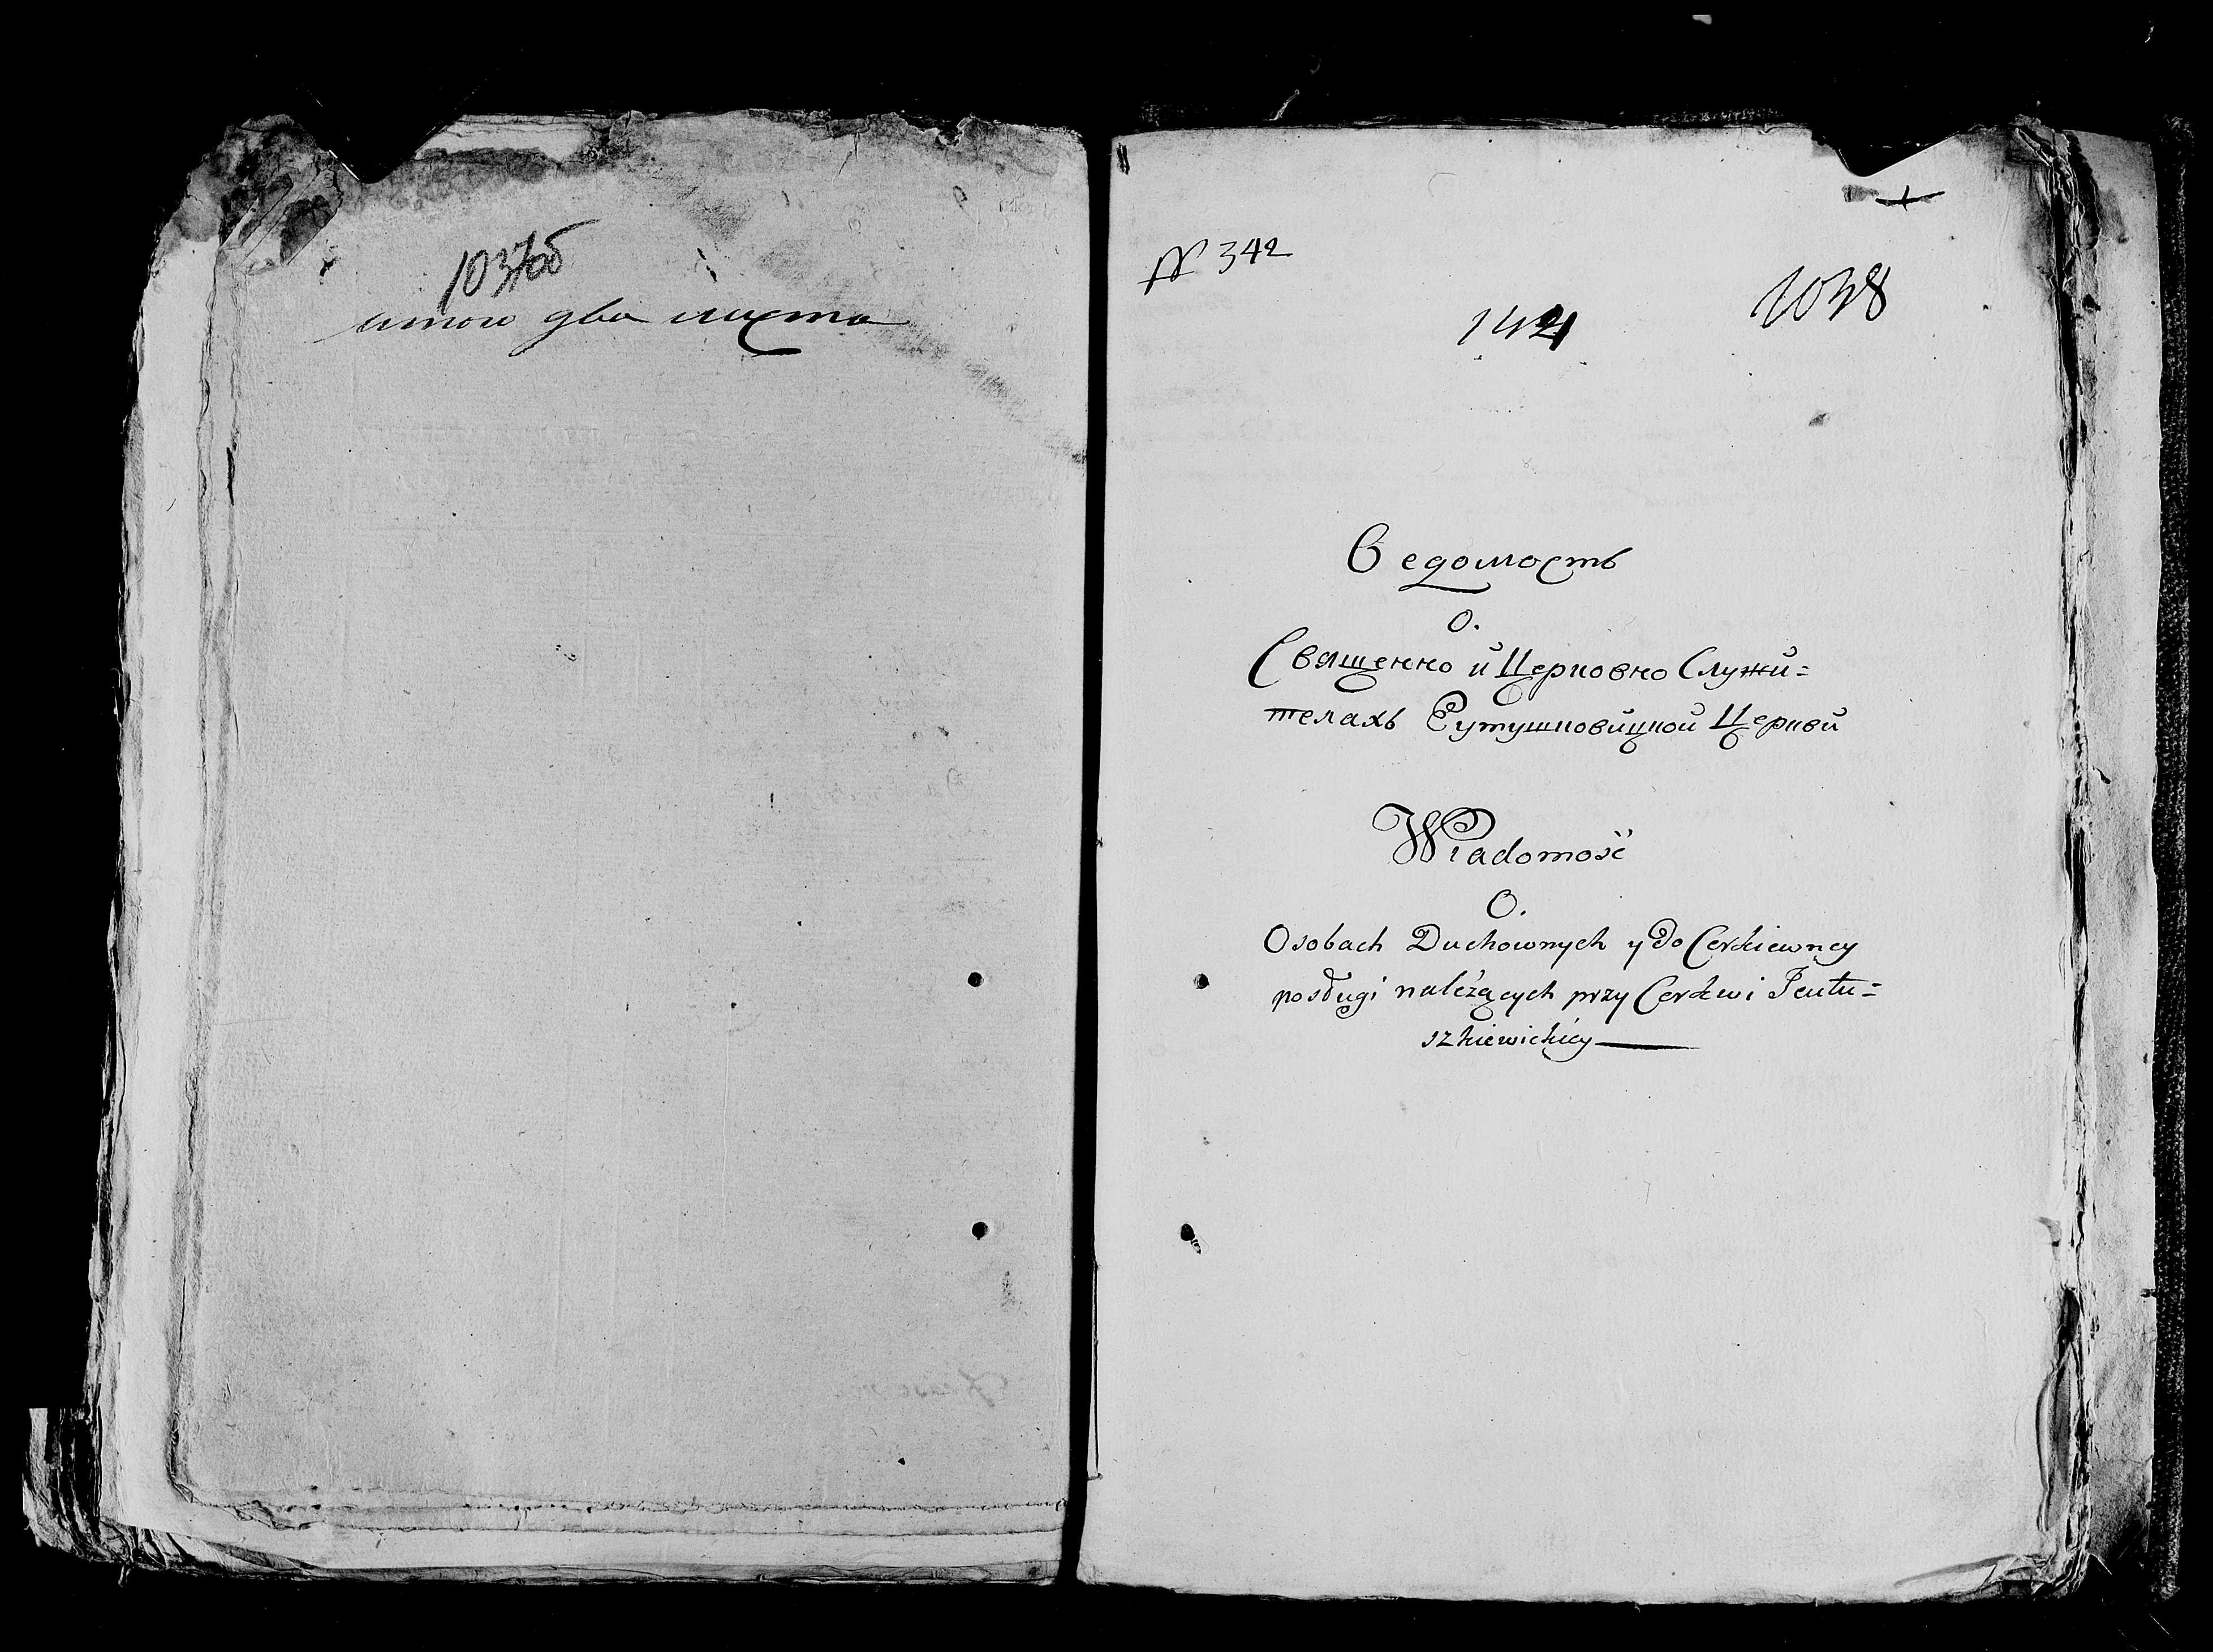 1037об
итого два листа
№ 342
1038
Ведомость
О.
Священно й Церковно Служй=
телахъ Еутушковйцкой Церквй
Wiadomość
O.
Osobach Duchownych y do Cerkiewney
posługi należących przy Cerkwi Jeutu=
szkiewickiey